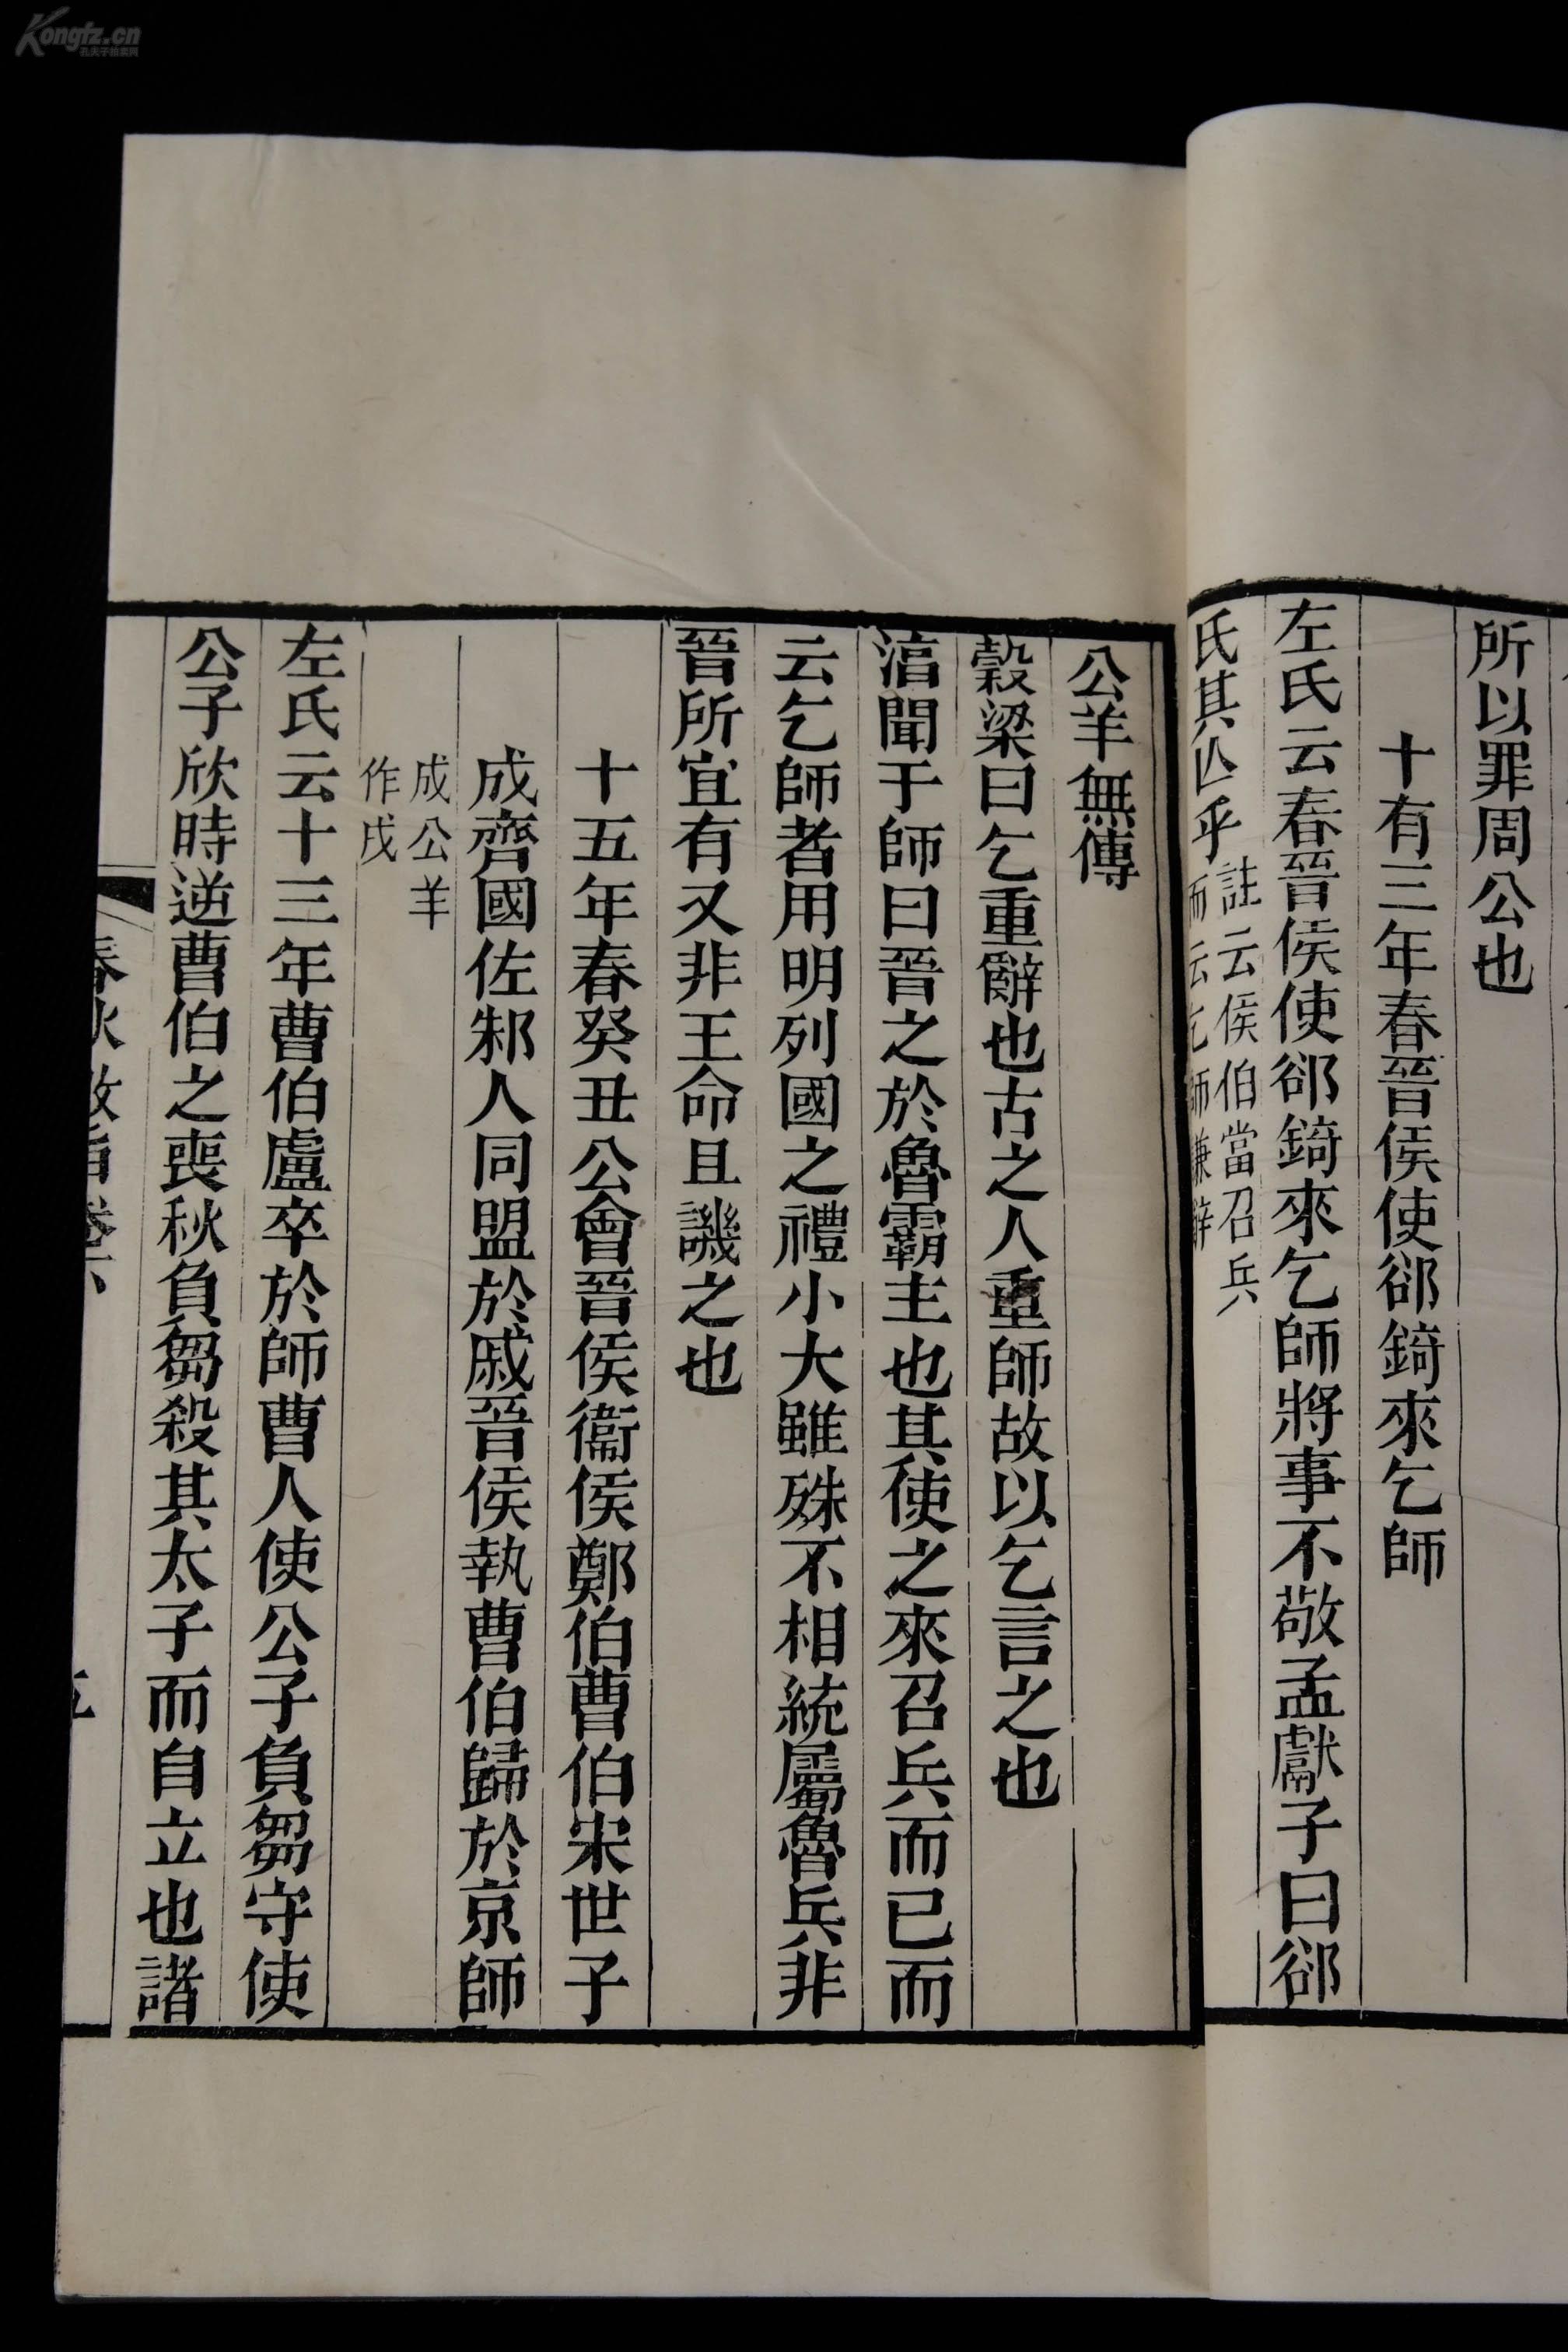 Kongfz.cn
孔夫子拍卖网
所以罪周公也
十有三年春晉侯使郤錡來乞師
左氏云春晉侯使郤錡來乞師將事不敬孟獻子曰郤
氏其亡乎
註云侯伯當召兵
而云乞師謙辭
公羊無傳
穀梁曰乞重辭也古之人重師故以乞言之也
湻聞于師曰晉之於魯霸主也其使之來召兵而已而
云乞師者用明列國之禮小大雖殊不相統屬魯兵非
晉所宜有又非王命且譏之也
十五年春癸丑公會晉侯衞侯鄭伯曹伯宋世子
成齊國佐邾人同盟於戚晉侯執曹伯歸於京師
成公羊
作戌
左氏云十三年曹伯盧卒於師曹人使公子負芻守使
公子欣時逆曹伯之喪秋負芻殺其太子而自立也諸
春秋